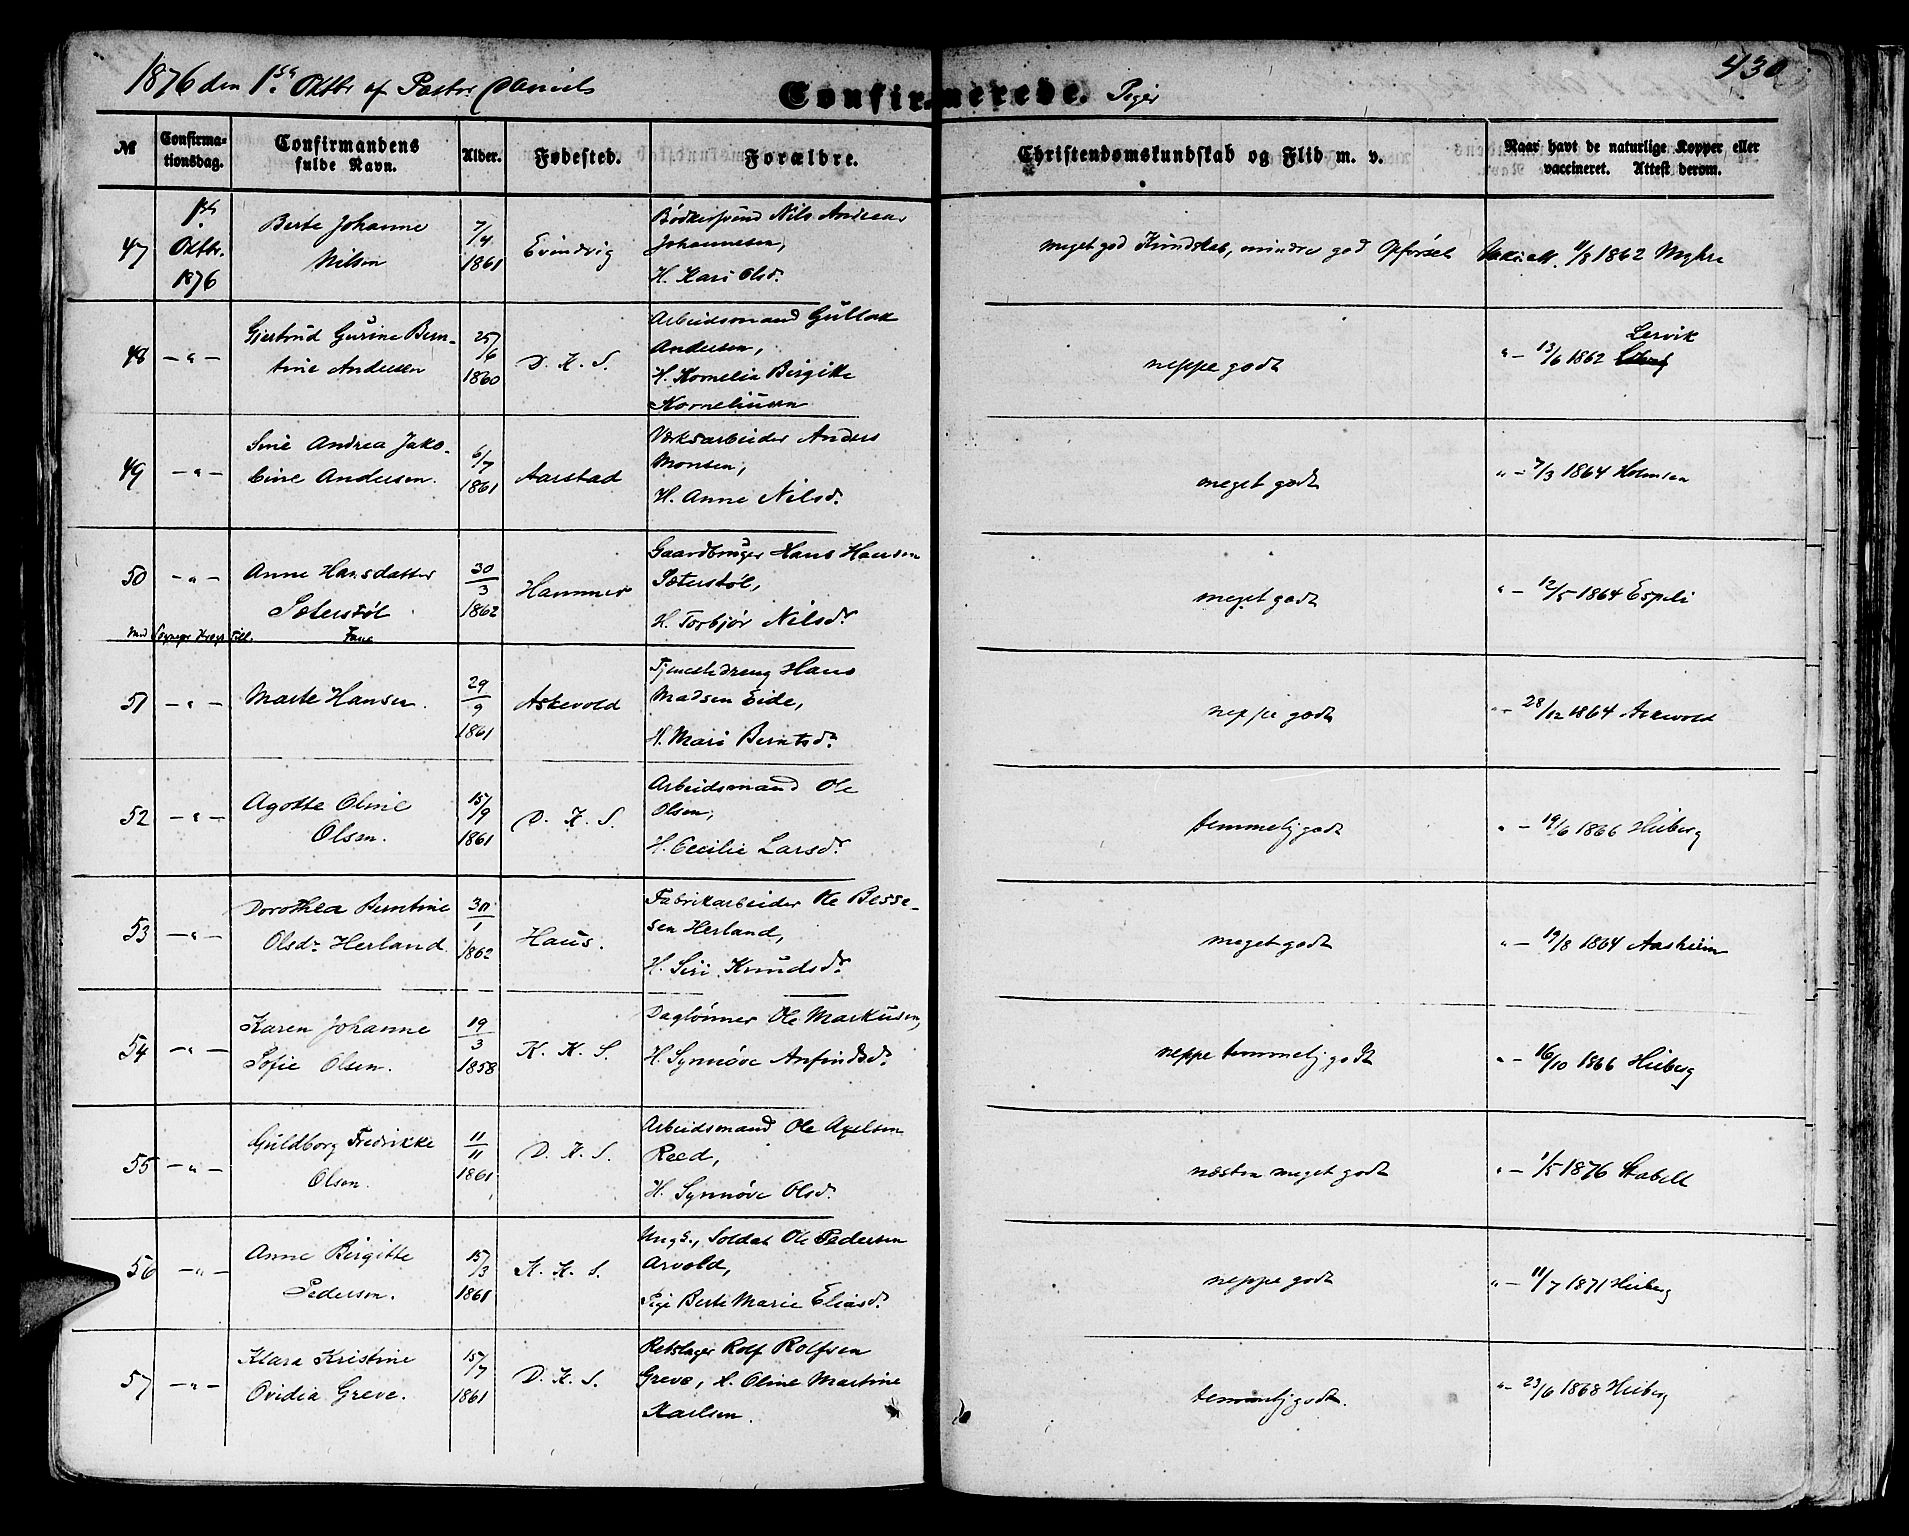 1876 den 1ste Oktbr af Pastor Daniels
Confirmerede. Piger
430
№
Confirma-
tionsdag.
Confirmandens
fulde Navn.
Alder.
Fødested.
Forældre.
Christendomskundskab og Flid m. v.
Naar havt de naturlige Kopper eller
vaccineret. Attest derom.
47
1ste
Oktbr.
1876
Berte Johanne
Nilsen
7/4
1861
Evindvig
Bødkersvend Nils Andreas
Johannesen,
H. Kari Olsdr.
meget god Kundskab, mindre god Opførsel
Vakc. att. 11/8 1862 Myhre
48
— " —
Gjertrud Gurine Bern-
tine Andersen
25/6
1860
D. K. S.
Arbeidsmand Gullak
Andersen,
H. Kornelia Birgitte
Korneliusen
neppe godt
" — 13/6 1862
Lervik
49
— " —
Sine Andrea Jako-
bine Andersen.
6/7
1861
Aarstad
Værksarbeider Anders
Monsen,
H. Anne Nilsdr.
meget godt
" — 7/3 1864 Holmsen
50
— " —
Anne Hansdatter
Sæterstøl
30/3
1862
Hammer
Gaardbruger Hans Hansen
Sæterstøl,
H. Torbjør Nilsdr.
meget godt
" — 12/5 1864 Espeli
Med Sognepr. Till.
Fane
51
— " —
Marte Hansen.
29/9
1861
Askevold
Tjenestedreng Hans
Madsen Eide,
H. Mari Berntsdr.
neppe godt
" — 28/12 1864 Askevold
52
— " —
Agotte Oline
Olsen.
15/9
1861
D. K. S.
Arbeidsmand Ole
Olsen,
H. Cecilie Larsdr.
temmelig godt
" — 19/6 1866 Hieberg
53
— " —
Dorothea Berntine
Olsdr. Herland
30/1
1862
Haus.
Fabrikarbeider Ole Besse-
sen Herland,
H. Siri Knudsdr.
meget godt
" — 19/8 1864 Aasheim
54
— " —
Karen Johanne
Sofie Olsen.
19/3
1858
K. K. S.
Daglønner Ole Markusen,
H. Synnøve Anfindsdr.
neppe temmelig godt
" — 16/10 1866 Hieberg
55
— " —
Guldborg Fredrikke
Olsen.
11/11
1861
D. K. S.
Arbeidsmand Ole Axelsen
Reed,
H. Synnøve Olsdr.
næsten meget godt
" — 1/5 1876 Stabell
56
— " —
Anne Birgitte
Pedersen.
15/3
1861
K. K. S.
Ungk., Soldat Ole Pedersen
Arvold,
Pige Berte Marie Eliasdr.
neppe godt
" — 11/7 1871 Hieberg
57
— " —
Klara Kristine
Ovidia Greve.
15/7
1861
D. K. S.
Rebslager Rolf Rolfsen
Greve, H. Oline Martine
Karlsen.
temmelig godt.
" — 23/6 1868 Hieberg